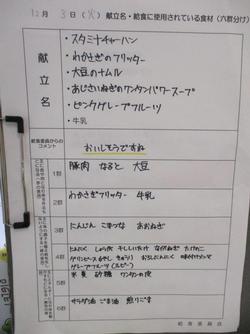 12月 3日(火) 献立名・給食に使用されている食材(六群分け)
献立名
・スタミナチャーハン
・わかさぎのフリッター
・大豆のナムル
・あじさいねぎのワンタンパワースープ
・ピンクグレープフルーツ
・牛乳
給食委員からのコメント
おいしそうですね
1群
豚肉 なると 大豆
2群
わかさぎフリッター 牛乳
3群
にんじん こまつな あおねぎ
4群
にんにく しょうが 干ししいたけ ながねぎ たけのこ
グリンピース もやし きゅうり おろしにんにく 味付けメンマ
グレープフルーツ(ルビー)
5群
米 麦 砂糖 ワンタンの皮
6群
サラダ油 ごま油 煎りごま
給食委員会